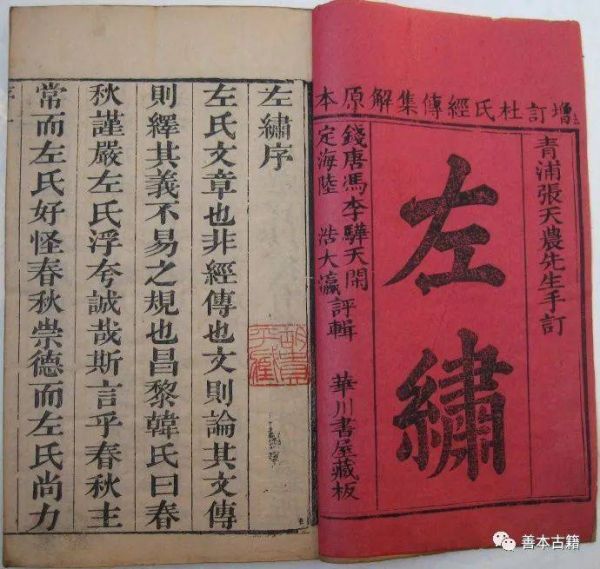 增訂杜氏經傳集解原本
青浦張天農先生手訂
左繡
錢唐馮李驊天閑
定海陸 浩大瀛
評輯
華川書屋藏板
左繡序
左氏文章也非經傳也文則論其文傳
則繹其義不易之規也昌黎韓氏曰春
秋謹嚴左氏浮夸誠哉斯言乎春秋主
常而左氏好怪春秋崇德而左氏尚力
善本古籍